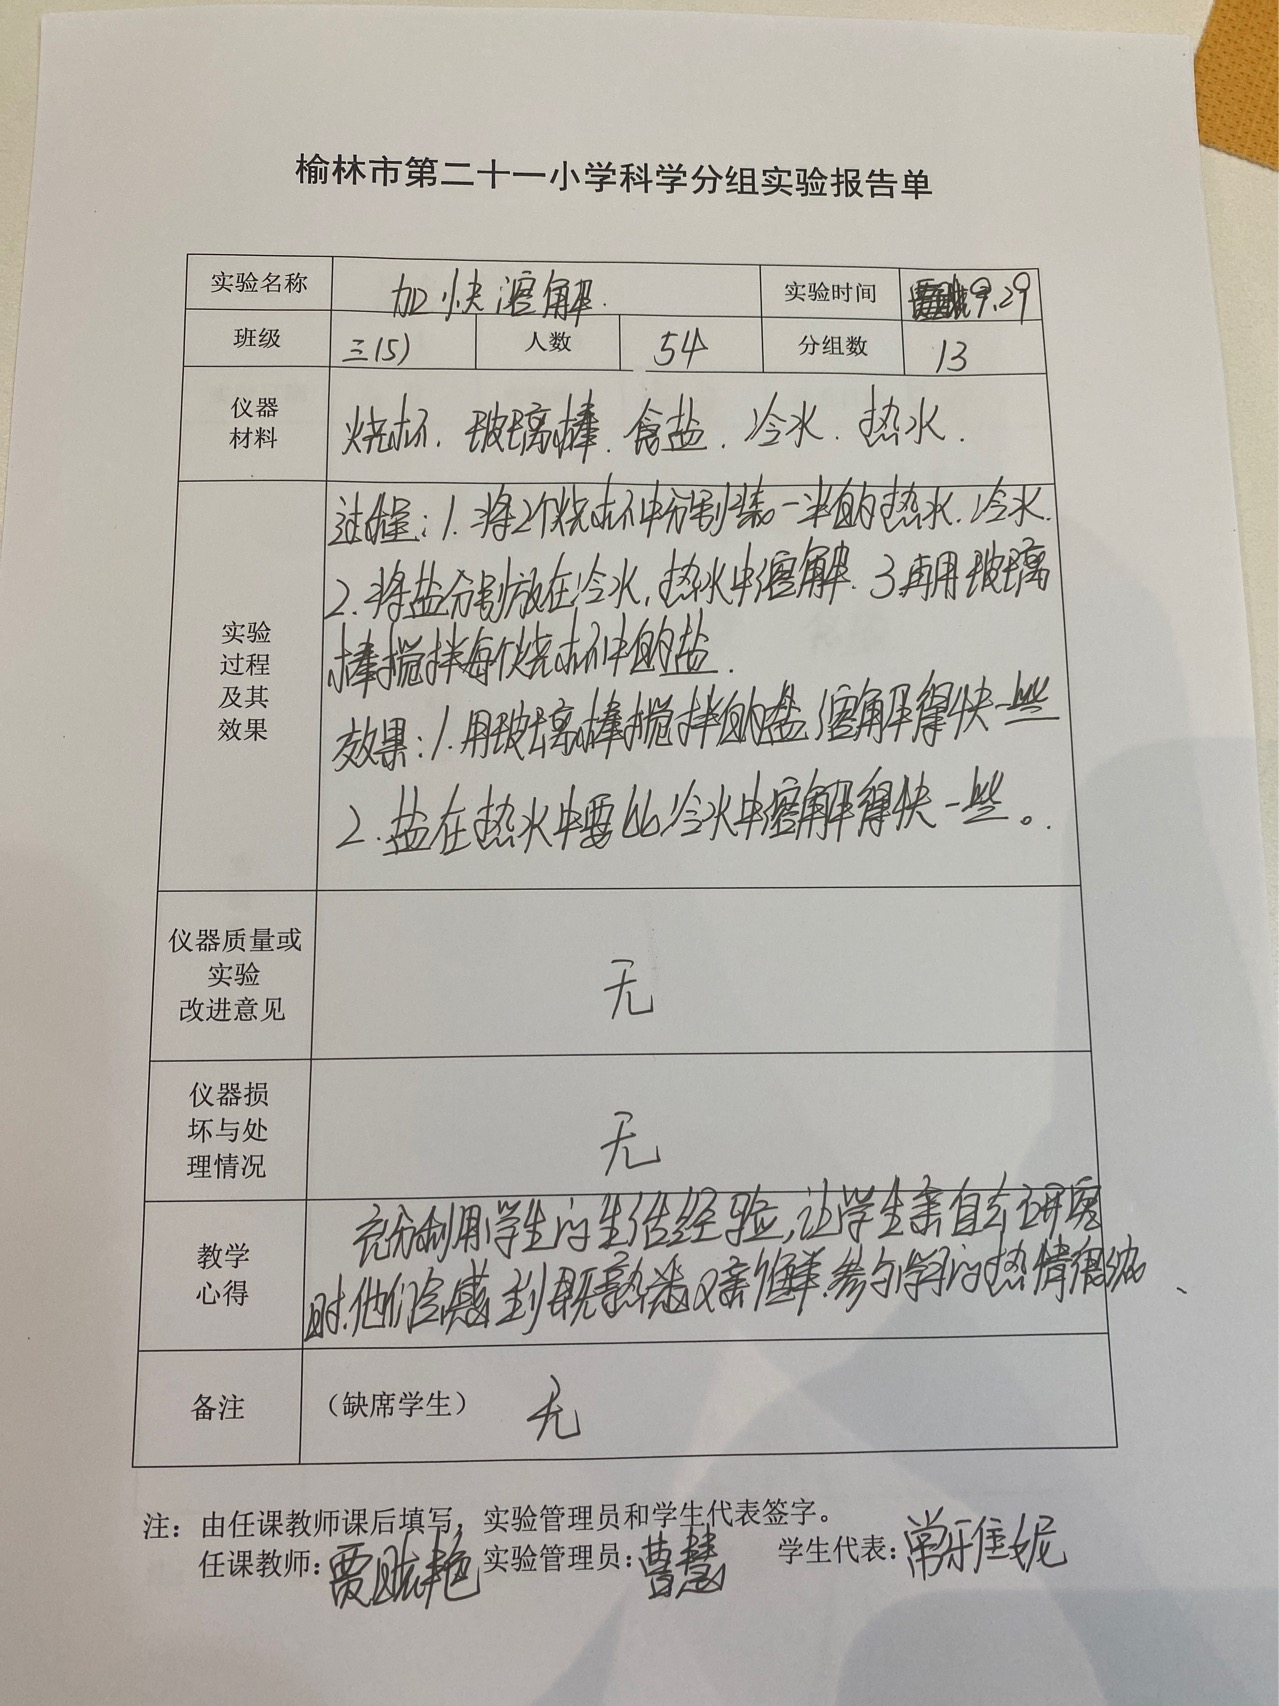 榆林市第二十一小学科学分组实验报告单
实验名称 加快溶解. 实验时间 9.29
班级 三(5) 人数 54 分组数 13
仪器
材料
烧杯. 玻璃棒. 食盐. 冷水. 热水.
实验
过程
及其
效果
过程:1.将2个烧杯中分别装一半的热水.冷水.
2.将盐分别放在冷水,热水中溶解.3再用玻璃
棒搅拌每个烧杯中的盐.
效果:1.用玻璃棒搅拌的盐溶解得快一些
2.盐在热水中要比冷水中溶解得快一些。
仪器质量或
实验
改进意见
无
仪器损
坏与处
理情况
无
教学
心得
充分利用学生的生活经验,让学生亲自去研究
时.他们会感到既熟悉又新鲜.参与学习的热情很浓
备注 (缺席学生) 无
注:由任课教师课后填写,实验管理员和学生代表签字。
任课教师:贾 艳 实验管理员:曹慧 学生代表:常 妮